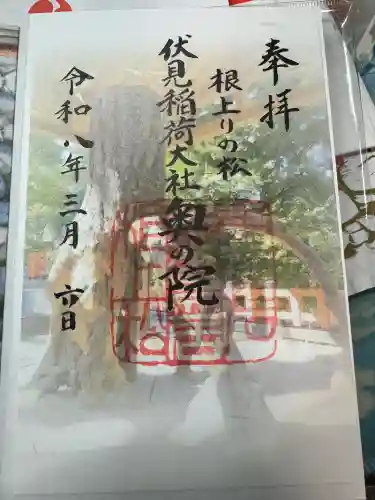 奉拝
根上りの松
伏見稲荷大社
奥の院
令和八年三月六日